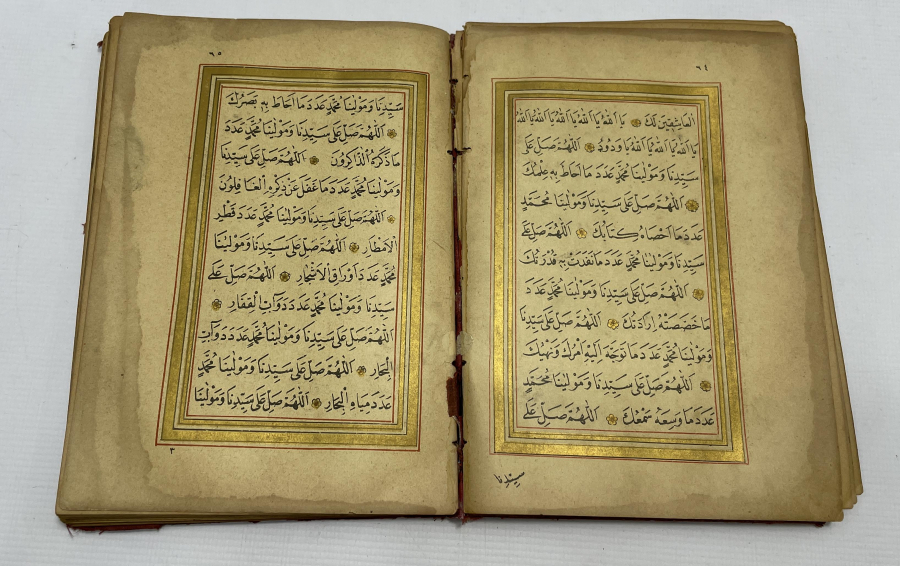 ٦٤
العاشقين لك يا الله يا الله يا الله يا الله يا الله
يا الله يا الله يا الله يا ودود اللهم صل على
سيدنا ومولينا محمد عدد ما احاط به علمك
اللهم صل على سيدنا ومولينا محمد
عدد ما احصاه كتابك اللهم صل على
سيدنا ومولينا محمد عدد ما نفذت به قدرتك
اللهم صل على سيدنا ومولينا محمد عدد
ما خصصته ارادتك اللهم صل على سيدنا
ومولينا محمد عدد ما توجه اليه امرك ونهيك
اللهم صل على سيدنا ومولينا محمد
عدد ما وسعه سمعك اللهم صل على
سيدنا
٦٥
سيدنا ومولينا محمد عدد ما احاط به بصرك
اللهم صل على سيدنا ومولينا محمد عدد
ما ذكره الذاكرون اللهم صل على سيدنا
ومولينا محمد عدد ما غفل عن ذكره الغافلون
اللهم صل على سيدنا ومولينا محمد عدد قطر
الامطار اللهم صل على سيدنا ومولينا
محمد عدد اوراق الاشجار اللهم صل على
سيدنا ومولينا محمد عدد دوآب القفار
اللهم صل على سيدنا ومولينا محمد عدد دوآب
البحار اللهم صل على سيدنا ومولينا محمد
عدد مياه البحار اللهم صل على سيدنا ومولينا
٣